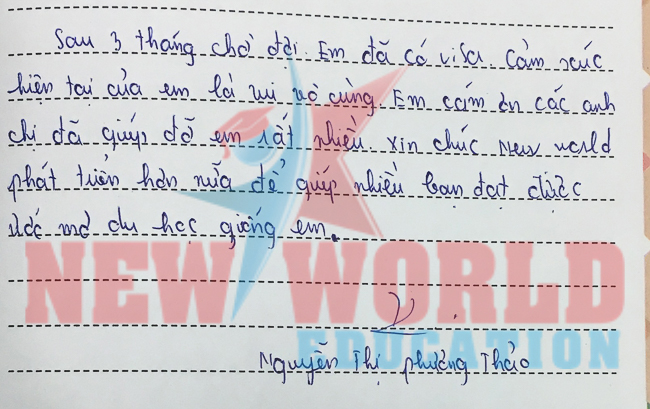 Sau 3 tháng chờ đợi. Em đã có visa. Cảm xúc
hiện tại của em là vui vô cùng. Em cám ơn các anh
chị đã giúp đỡ em rất nhiều. Xin chúc New world
phát triển hơn nữa để giúp nhiều bạn đạt được
ước mơ du học giống em.
NEW WORLD
EDUCATION
Nguyễn Thị Phương Thảo